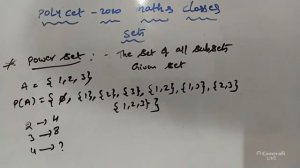 POLYCET - 2020 Maths classes
Sets
* Power set :- The set of all subsets
Given set
A = {1,2,3}
P(A) = { ø, {1}, {2}, {3}, {1,2}, {1,3}, {2,3}
{1,2,3} }
2 → 4
3 → 8
4 → ?